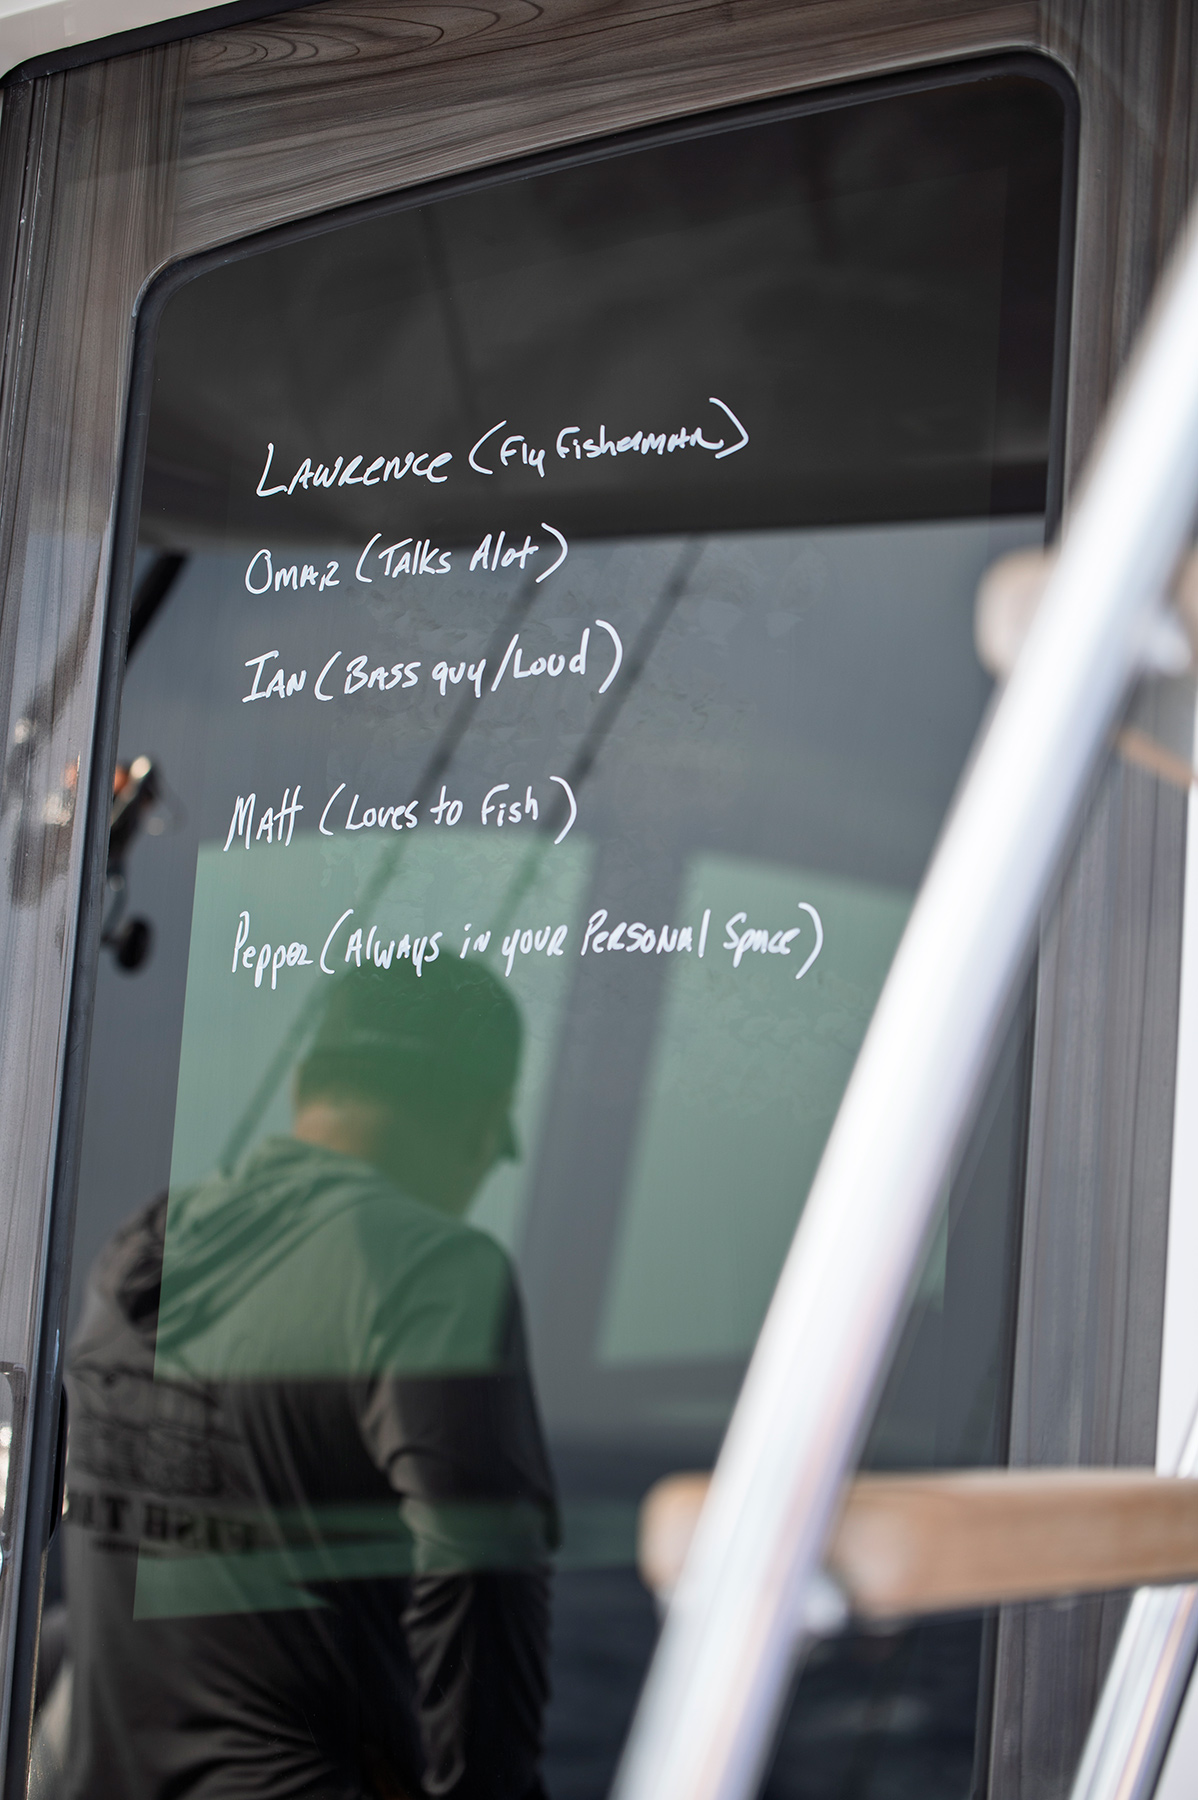 Lawrence (Fly Fisherman)
Omar (Talks Alot)
Ian (Bass guy/Loud)
Matt (Loves to Fish)
Pepper (Always in your Personal Space)